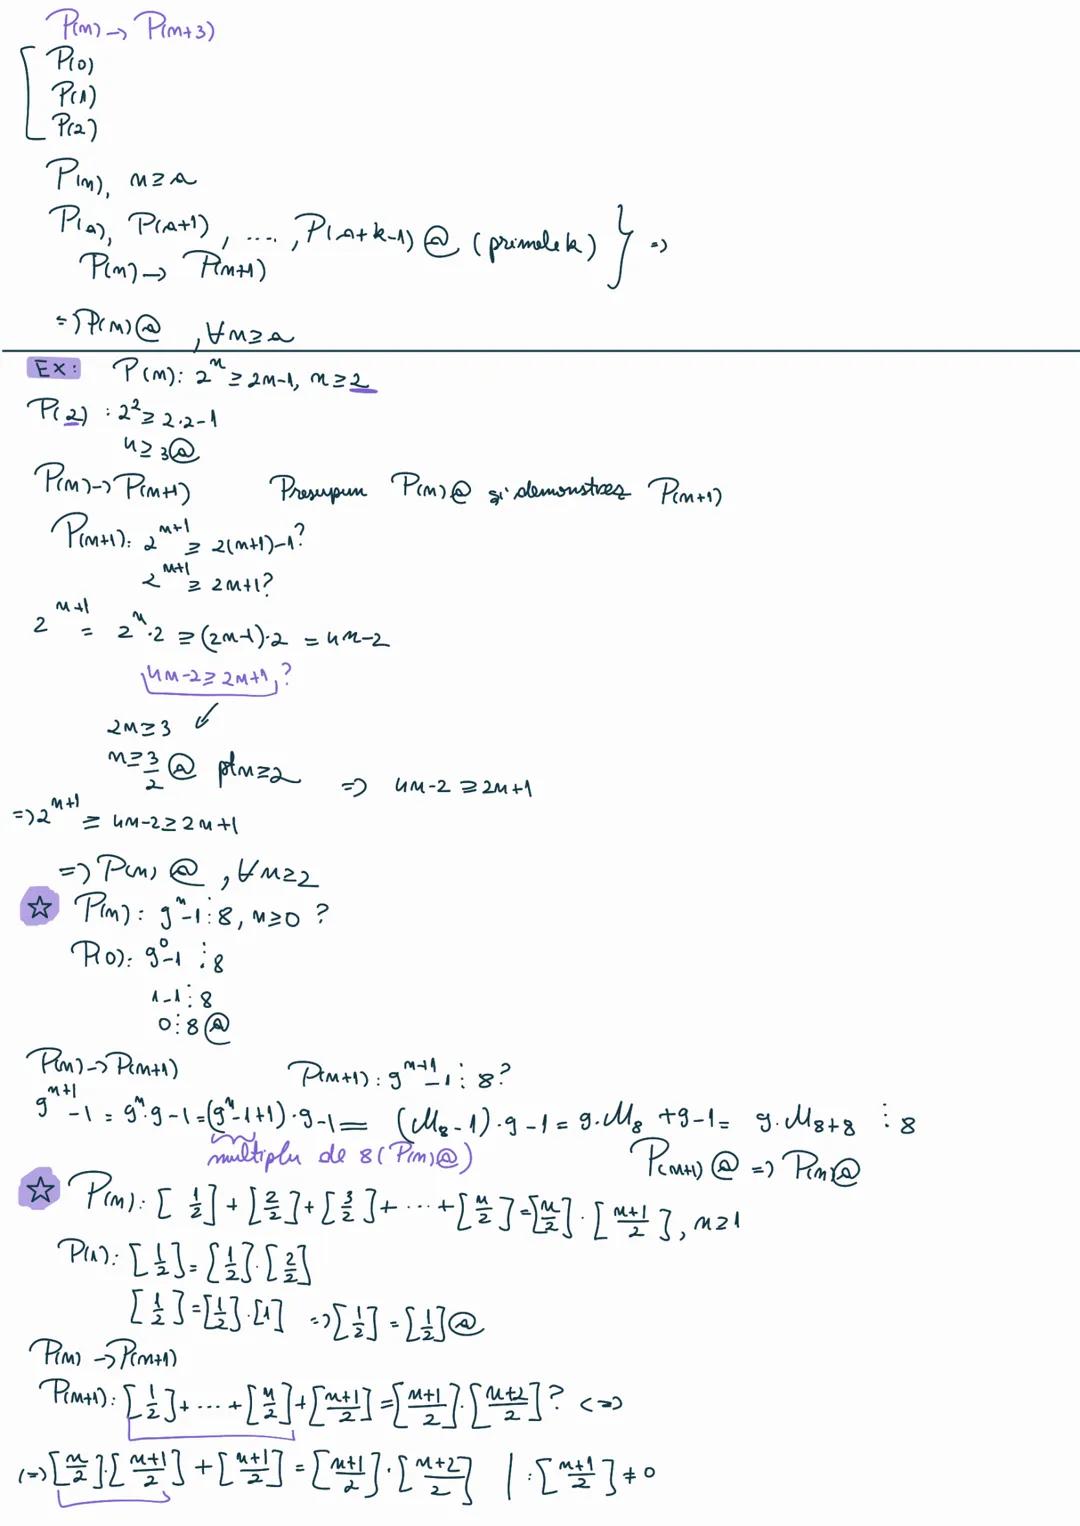 P(n) → P(n+3)
P(0)
P(1)
P(2)
P(n), n≥a
P(a), P(a+1), ...., P(a+k-1) ⓐ (primele k) } =>
P(n) → P(n+1)
=> P(n) ⓐ, ∀n≥a
Ex: P(n): 2^n ≥ 2n-1, n≥2
P(2): 2^2 ≥ 2·2-1
4≥3 ⓐ
P(n) -> P(n+1) Presupun P(n) ⓐ și demonstrez P(n+1)
P(n+1): 2^{n+1} ≥ 2(n+1)-1?
2^{n+1} ≥ 2n+1?
2^{n+1} = 2^n·2 ≥ (2n-1)·2 = 4n-2
4n-2 ≥ 2n+1, ?
2n≥3 ↙
n≥3/2 ⓐ pt n≥2 => 4n-2 ≥ 2n+1
=> 2^{n+1} ≥ 4n-2 ≥ 2n+1
=> P(n) ⓐ, ∀n≥2
☆ P(n): 9^n-1⋮8, n≥0 ?
P(0): 9^0-1 ⋮8
1-1⋮8
0⋮8 ⓐ
P(n) -> P(n+1) P(n+1): 9^{n+1}-1⋮8?
9^{n+1}-1 = 9^n·9-1 = (9^n-1+1)·9-1 = (M8-1)·9-1 = 9·M8+9-1 = 9·M8+8 ⋮8
multiplu de 8 (P(n) ⓐ) P(n+1) ⓐ => P(n) ⓐ
☆ P(n): [1/2]+[2/2]+[3/2]+...+[n/2]=[n/2]·[(n+1)/2], n≥1
P(1): [1/2]=[1/2]·[2/2]
[1/2]=[1/2]·[1] => [1/2]=[1/2] ⓐ
P(n) → P(n+1)
P(n+1): [1/2]+...+[n/2]+[(n+1)/2]=[(n+1)/2]·[(n+2)/2]? <=>
(=>) [n/2]·[(n+1)/2]+[(n+1)/2]=[(n+1)/2]·[(n+2)/2] | :[(n+1)/2]≠0